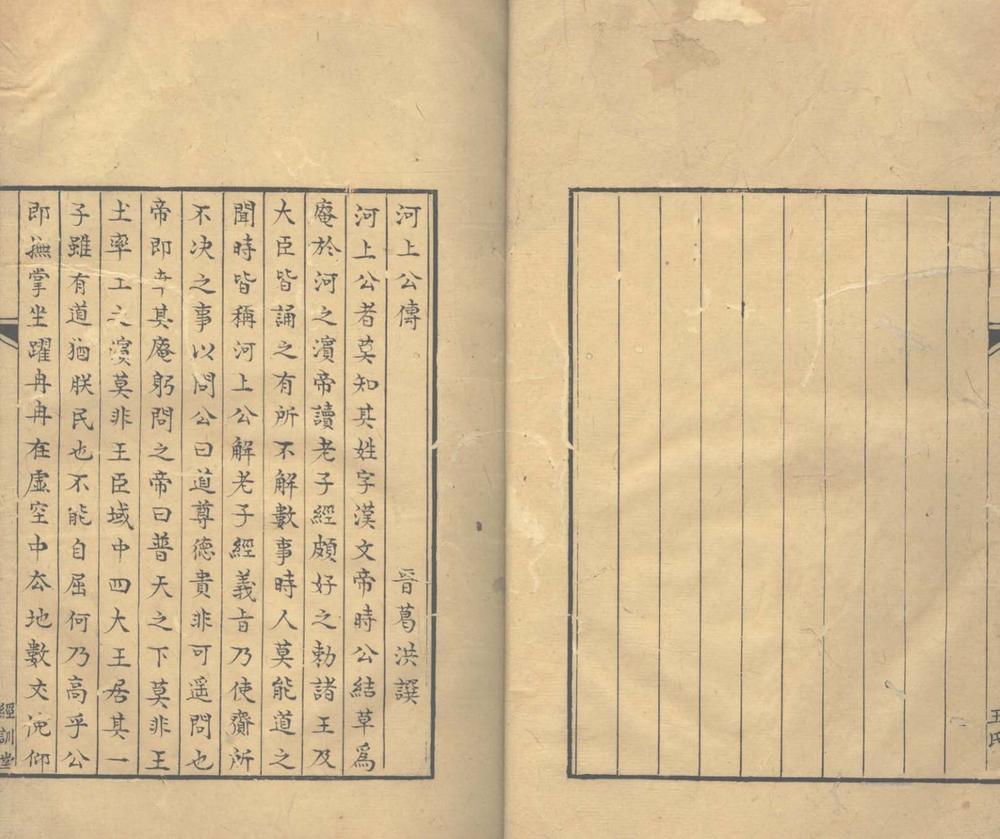 河上公傳 晉葛洪譔
河上公者莫知其姓字漢文帝時公結草爲
庵於河之濱帝讀老子經頗好之勅諸王及
大臣皆誦之有所不解數事時人莫能道之
聞時皆稱河上公解老子經義旨乃使齎所
不决之事以問公曰道尊德貴非可遥問也
帝即幸其庵躬問之帝曰普天之下莫非王
土率土之濵莫非王臣域中四大王居其一
子雖有道猶朕民也不能自屈何乃高乎公
即撫掌坐躍冉冉在虛空中去地數丈俛仰
經訓堂